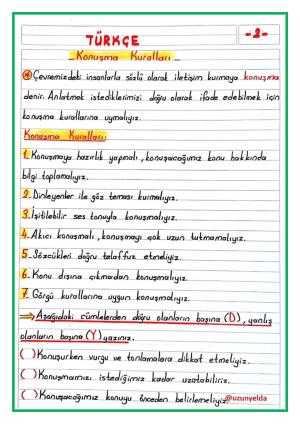 TÜRKÇE
-2-
Konuşma Kuralları
Çevremizdeki insanlarla sözlü olarak iletişim kurmaya konuşma
denir. Anlatmak istediklerimizi doğru olarak ifade edebilmek için
konuşma kurallarına uymalıyız.
Konuşma Kuralları:
1. Konuşmaya hazırlık yapmalı, konuşacağımız konu hakkında
bilgi toplamalıyız.
2. Dinleyenler ile göz teması kurmalıyız.
3. İşitilebilir ses tonuyla konuşmalıyız.
4. Akıcı konuşmalı, konuşmayı çok uzun tutmamalıyız.
5. Sözcükleri doğru telaffuz etmeliyiz.
6. Konu dışına çıkmadan konuşmalıyız.
7. Görgü kurallarına uygun konuşmalıyız.
⇒ Aşağıdaki cümlelerden doğru olanların başına (D), yanlış
olanların başına (Y) yazınız.
( ) Konuşurken vurgu ve tonlamalara dikkat etmeliyiz.
( ) Konuşmamızı istediğimiz kadar uzatabiliriz.
( ) Konuşacağımız konuyu önceden belirlemeliyiz.
@uzunyelda